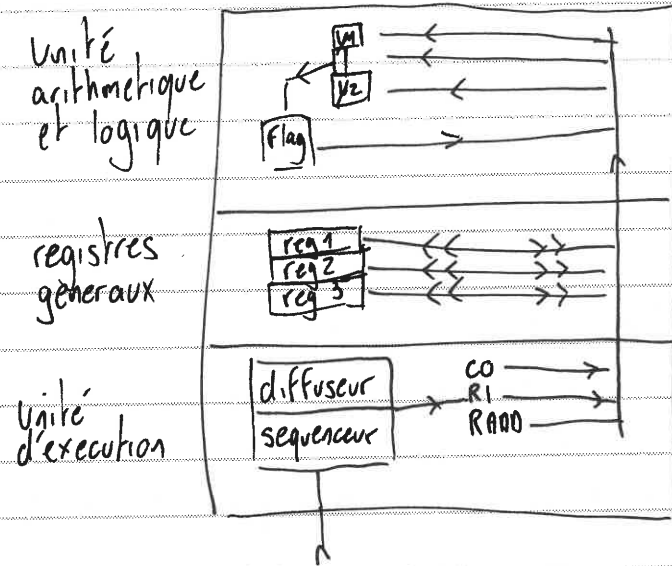 Unité
arithmetique
et logique
Y2
Flag
registres
géneraux
reg 1
reg 2
reg 3
Unité
d'execution
diffuseur
sequenceur
CO
RI
RADD